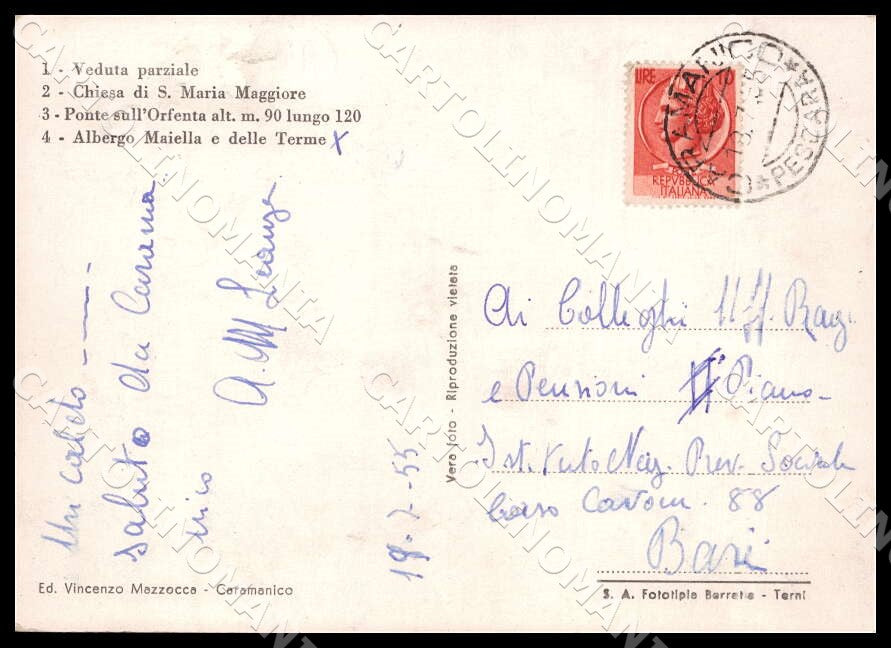 1 - Veduta parziale
2 - Chiesa di S. Maria Maggiore
3 - Ponte sull'Orfenta alt. m. 90 lungo 120
4 - Albergo Maiella e delle Terme x
LIRE 10
REPVBBLICA
ITALIANA
CARAMANICO
PESCARA
Un caldo
saluto da Carama
nico
18-7-55
Vera foto - Riproduzione vietata
Ai Colleghi Uff. Rag.
e Pensioni II° Piano
Istituto Naz. Prev. Sociale
Corso Cavour. 88
Bari
Ed. Vincenzo Mazzocca - Caramanico
S. A. Fototipia Barretta - Terni
CARTOLINOMANIA